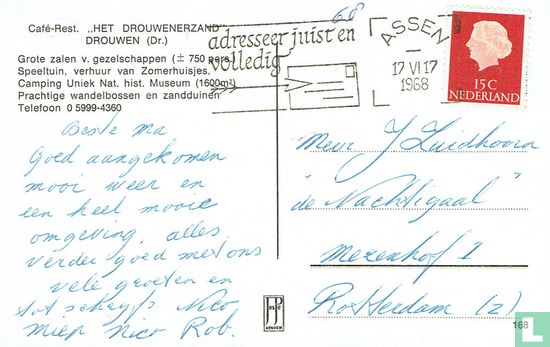 Café-Rest. „HET DROUWENERZAND"
DROUWEN (Dr.)
Grote zalen v. gezelschappen (± 750 pers.)
Speeltuin, verhuur van Zomerhuisjes,
Camping Uniek Nat. hist. Museum (1600m²)
Prachtige wandelbossen en zandduinen
Telefoon 0 5999-4360
68
adresseer juist en
volledig
ASSEN
17 VI 17
1968
15C
NEDERLAND
Beste ma
Goed aangekomen
mooi weer en
een heel mooie
omgeving, alles
verder goed met ons
vele groeten en
tot schrijfs Nico
Miep Nico Rob.
Mevr J Zuidhoorn
"de Nachtegaal"
Merenhof 1
Rotterdam (Z)
ARNHEM
168
catawiki